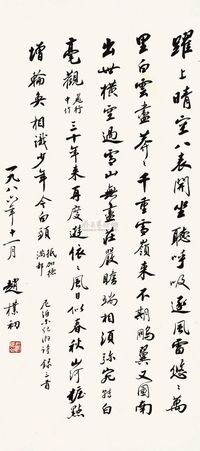 躍上晴空八表開坐聽呼吸逐風雷悠〻萬
里白雲盡莽〻千重雪嶺來不期鵬翼又圖南
出世橫空過雪山無盡莊嚴瞻端相須彌宛白
毫觀 飛行中作 三十年來再度遊依〻風日似春秋山河粧點
增輪奐相識少年今白頭 抵加德滿都
尼泊尔紀游詩錄三首
一九八六年十一月 趙樸初